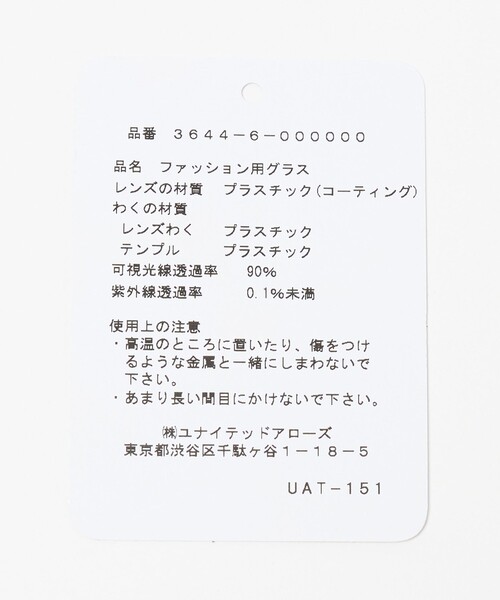 品番　３６４４－６－００００００
品名　ファッション用グラス
レンズの材質　プラスチック(コーティング)
わくの材質
レンズわく　プラスチック
テンプル　プラスチック
可視光線透過率　90%
紫外線透過率　0.1%未満
使用上の注意
・高温のところに置いたり、傷をつけ
るような金属と一緒にしまわないで
下さい。
・あまり長い間目にかけないで下さい。
㈱ユナイテッドアローズ
東京都渋谷区千駄ケ谷１－１８－５
UAT-151